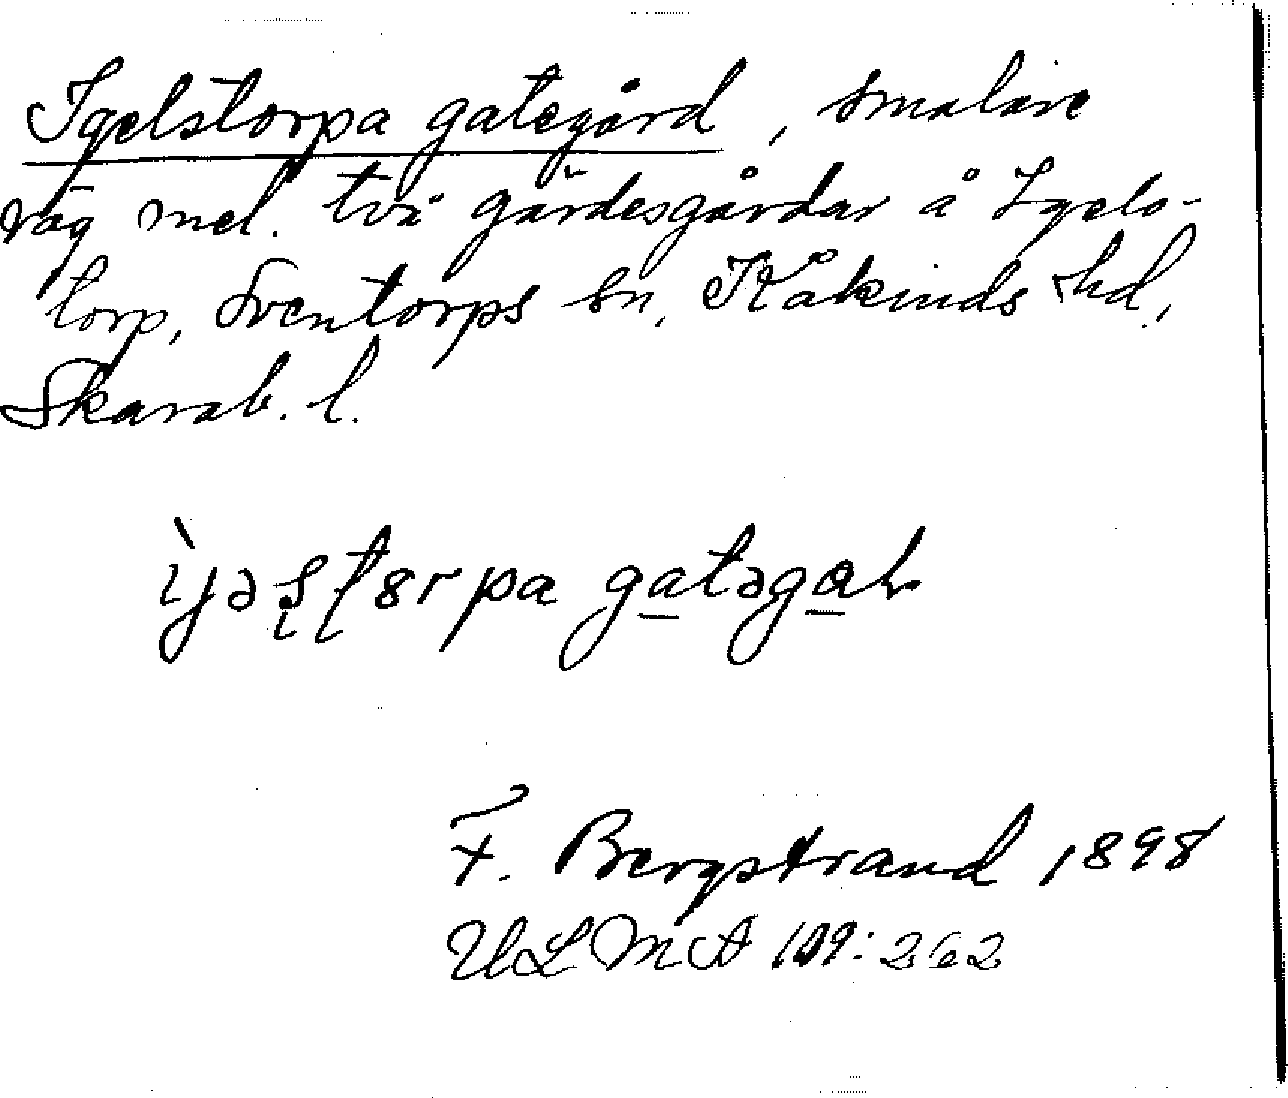 Igelstorpa gategård, smalare
väg mel. två gärdesgårdar å Igels-
torp, Sventorps sn, Kåkinds hd.,
Skarab. l.
F. Bergstrand 1898
ULMA 109:262